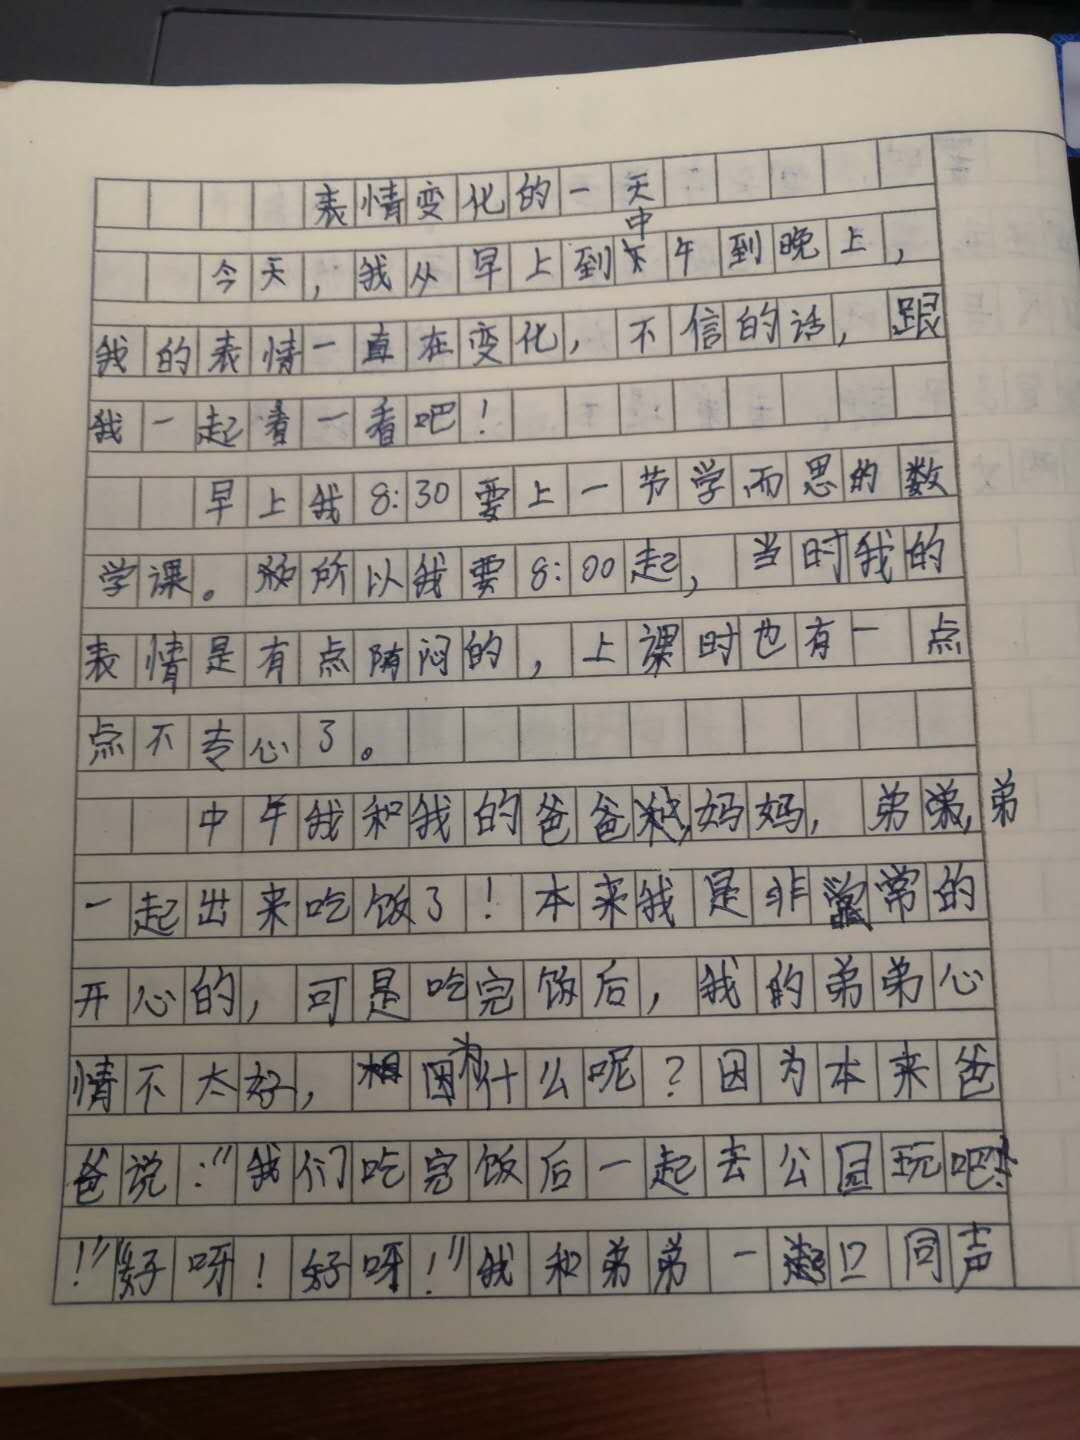 表情变化的一天
今天，我从早上到中午到晚上，
我的表情一直在变化，不信的话，跟
我一起看一看吧！
早上我8:30要上一节学而思的数
学课。所以我要8:00起，当时我的
表情是有点闷的，上课时也有一点
点不专心了。
中午我和我的爸爸，妈妈，弟弟，
一起出来吃饭了！本来我是非常的
开心的，可是吃完饭后，我的弟弟心
情不太好，因为什么呢？因为本来爸
爸说："我们吃完饭后一起去公园玩吧
！""好呀！好呀！"我和弟弟一起口同声